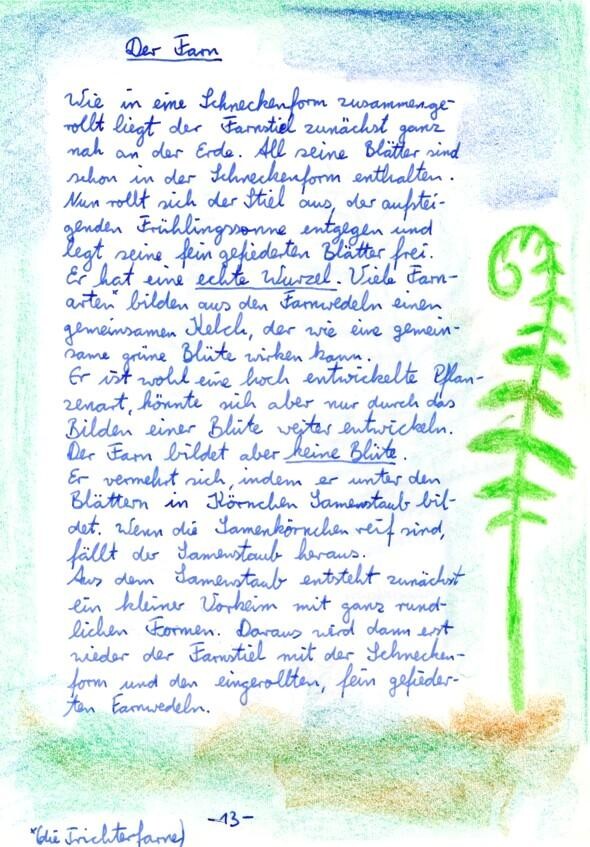 Der Farn
Wie in eine Schneckenform zusammenge-
rollt liegt der Farnstiel zunächst ganz
nah an der Erde. All seine Blätter sind
schon in der Schneckenform enthalten.
Nun rollt sich der Stiel aus, der aufstei-
genden Frühlingssonne entgegen und
legt seine fein gefiederten Blätter frei.
Er hat eine echte Wurzel. Viele Farn-
arten* bilden aus den Farnwedeln einen
gemeinsamen Kelch, der wie eine gemein-
same grüne Blüte wirken kann.
Er ist wohl eine hoch entwickelte Pflan-
zenart, könnte sich aber nur durch das
Bilden einer Blüte weiter entwickeln.
Der Farn bildet aber keine Blüte.
Er vermehrt sich, indem er unter den
Blättern in Körnchen Samenstaub bil-
det. Wenn die Samenkörnchen reif sind,
fällt der Samenstaub heraus.
Aus dem Samenstaub entsteht zunächst
ein kleiner Vorkeim mit ganz rund-
lichen Formen. Daraus wird dann erst
wieder der Farnstiel mit der Schnecken-
form und den eingerollten, fein gefieder-
ten Farnwedeln.
-13-
*(die Trichterfarne)